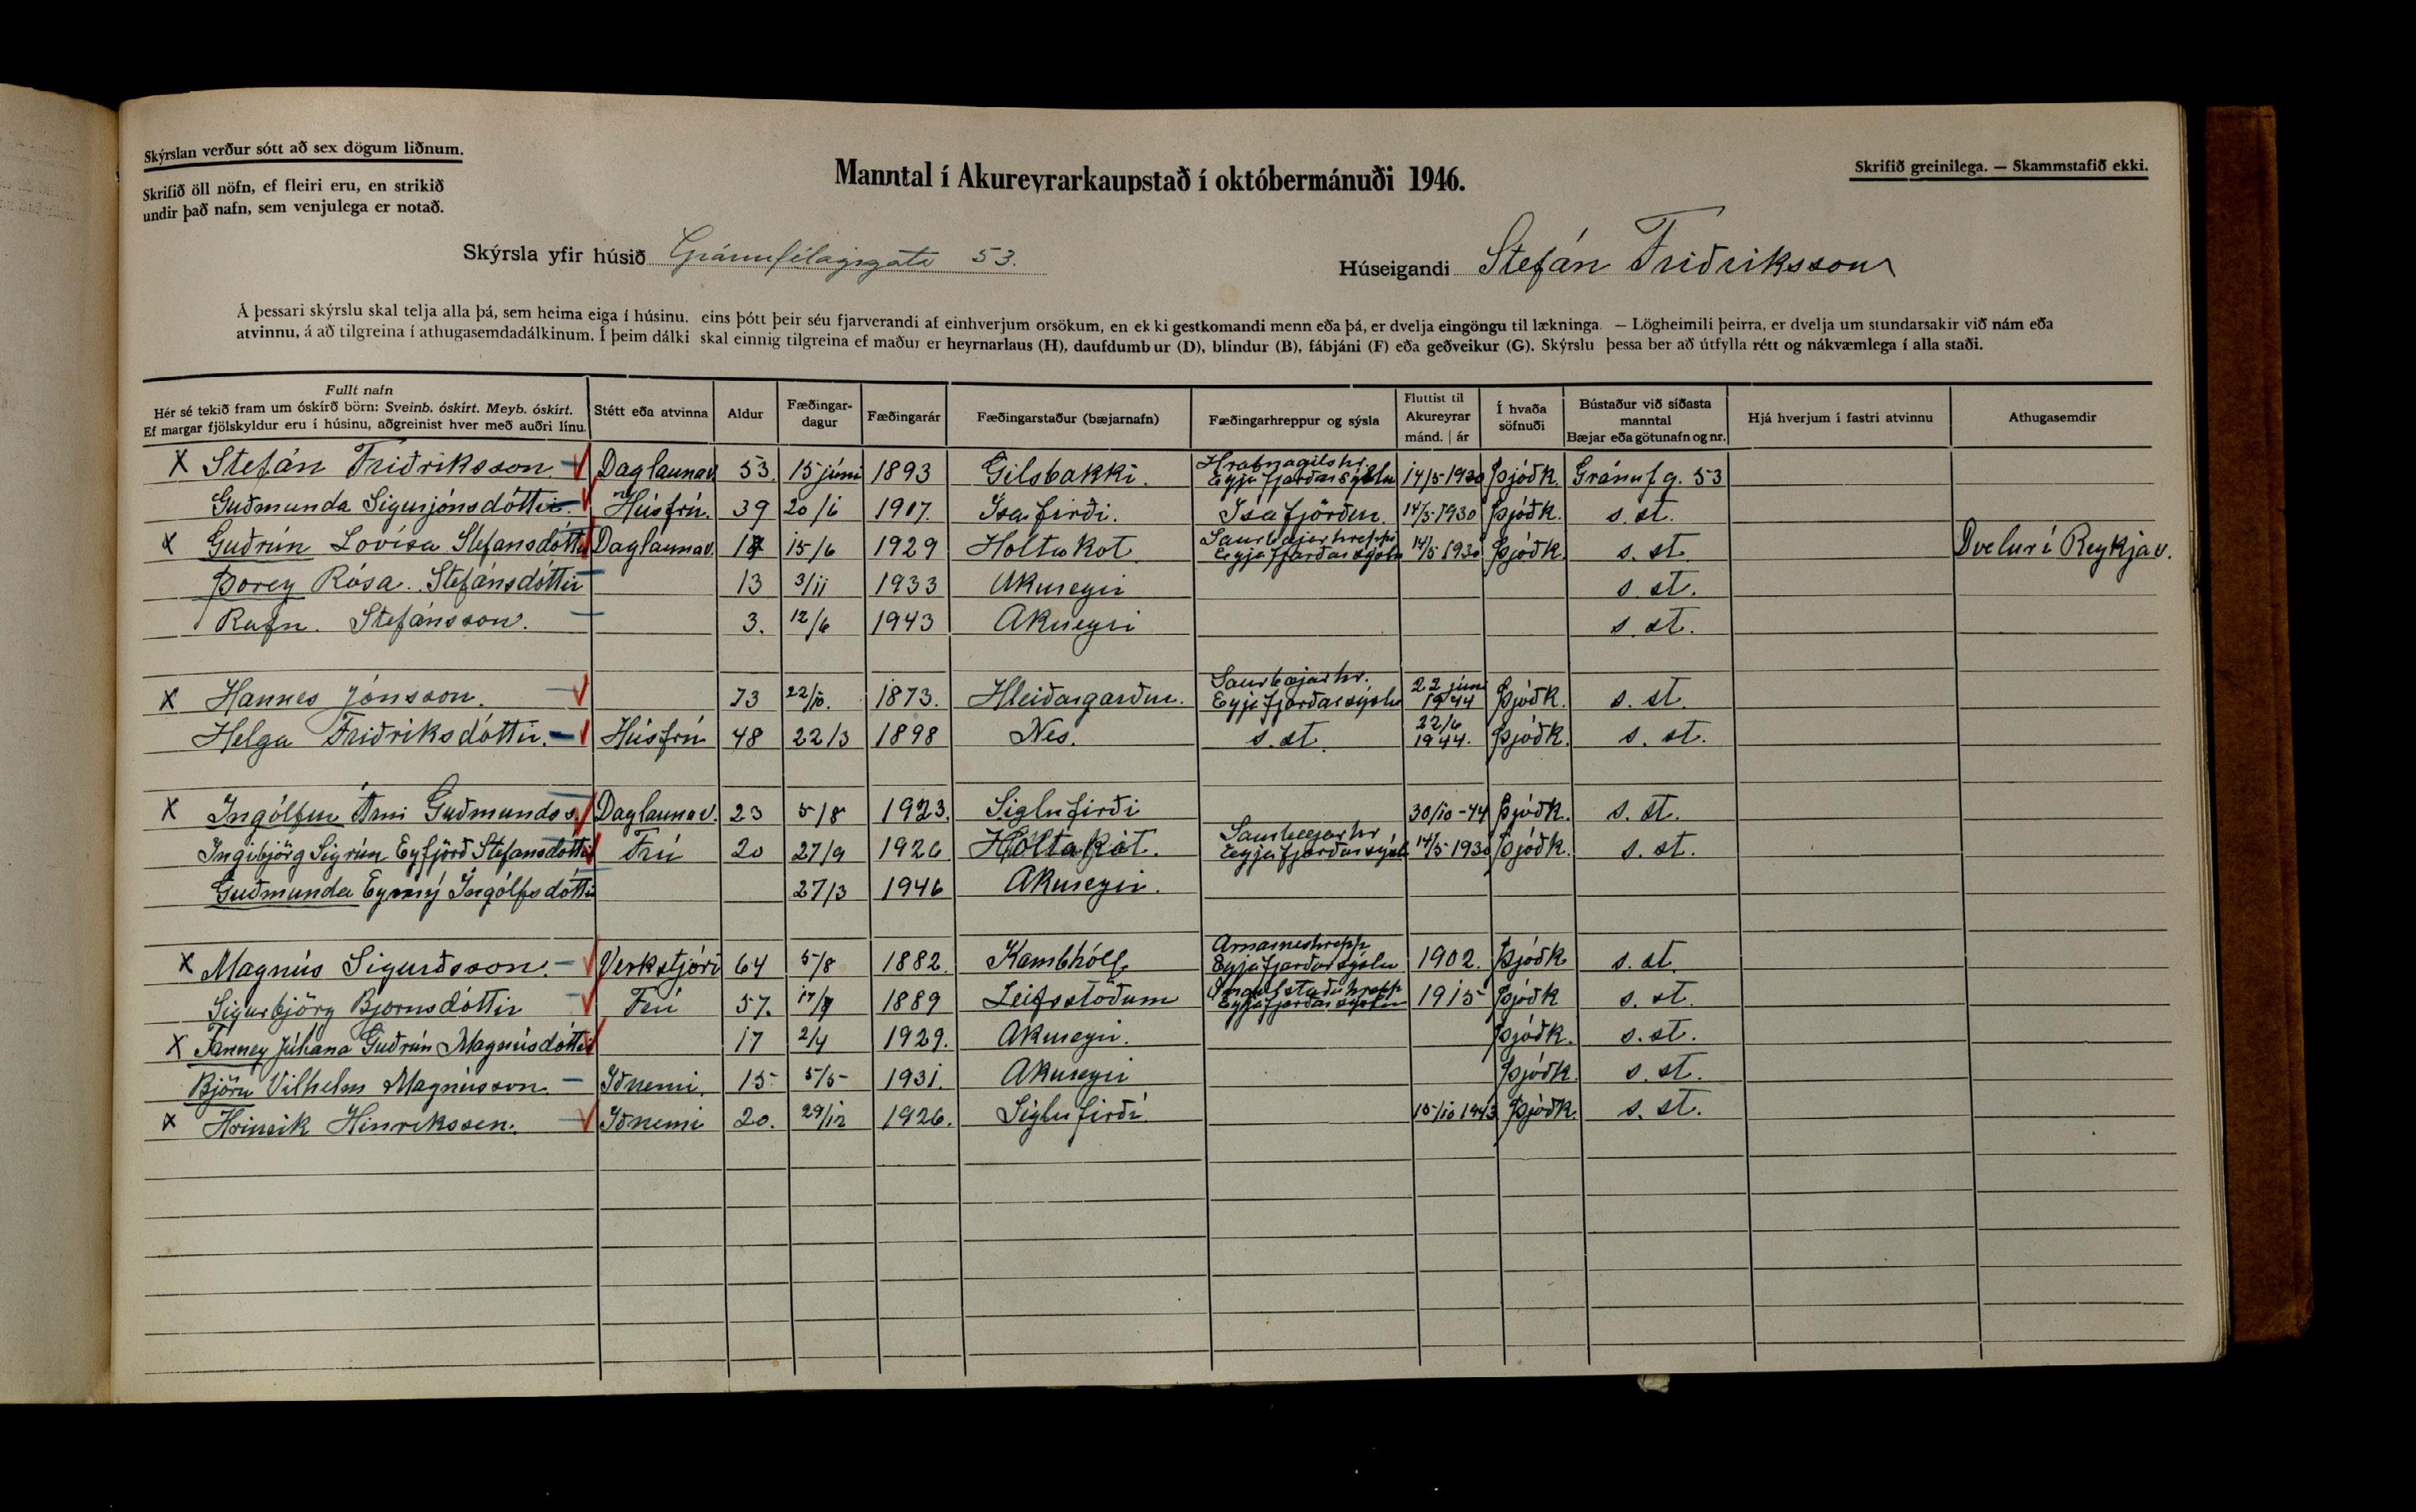 Skýrslan verður sótt að sex dögum liðnum.
Skrifið öll nöfn, ef fleiri eru, en strikið
undir það nafn, sem venjulega er notað.
Manntal í Akureyrarkaupstað í októbermánuði 1946.
Skrifið greinilega. — Skammstafið ekki.
Skýrsla yfir húsið Gránufélagsgata 53.
Húseigandi Stefán Friðriksson
Á þessari skýrslu skal telja alla þá, sem heima eiga í húsinu. eins þótt þeir séu fjarverandi af einhverjum orsökum, en ek ki gestkomandi menn eða þá, er dvelja eingöngu til lækninga. — Lögheimili þeirra, er dvelja um stundarsakir við nám eða
atvinnu, á að tilgreina í athugasemdadálkinum. Í þeim dálki skal einnig tilgreina ef maður er heyrnarlaus (H), daufdumb ur (D), blindur (B), fábjáni (F) eða geðveikur (G). Skýrslu þessa ber að útfylla rétt og nákvæmlega í alla staði.
Fullt nafn
Hér sé tekið fram um óskírð börn: Sveinb. óskírt. Meyb. óskírt.
Ef margar fjölskyldur eru í húsinu, aðgreinist hver með auðri línu.
Stétt eða atvinna
Aldur
Fæðingar-
dagur
Fæðingarár
Fæðingarstaður (bæjarnafn)
Fæðingarhreppur og sýsla
Fluttist til
Akureyrar
mánd. | ár
Í hvaða
söfnuði
Bústaður við síðasta
manntal
Bæjar eða götunafn og nr.
Hjá hverjum í fastri atvinnu
Athugasemdir
X Stefán Friðriksson Daglaunav. 53. 15 júní 1893 Gilsbakki. Hrafnagilshr. Eyjafjarðarsýslu 14/5 1930 Þjóðk. Gránufg. 53
Guðmunda Sigurjónsdóttir. Húsfrú. 39 20/6 1907. Ísafirði. Ísafjörður. 14/5 1930 Þjóðk. s. st.
X Guðrún Lovísa Stefansdóttir Daglaunav. 17 15/6 1929 Holtakot Saurbæjarhreppi Eyjafjarðarsýslu 14/5 1930 Þjóðk. s. st. Dvelur í Reykjav.
Þorey Rósa. Stefánsdóttir 13 3/11 1933 Akureyri s. st.
Rafn. Stefánsson. 3. 12/6 1943 Akureyri s. st.
X Hannes Jónsson. 73 22/10. 1873. Hleiðargarður. Saurbæjarhr. Eyjafjarðarsýslu 22 júní 1944 Þjóðk. s. st.
Helga Friðriksdóttir. Húsfrú 48 22/3 1898 Nes. s. st. 22/6 1944. Þjóðk. s. st.
X Ingólfur Árni Guðmundss. Daglaunav. 23 5/8 1923. Siglufirði 30/10-44 Þjóðk. s. st.
Ingibjörg Sigrún Eyfjörð Stefansdóttir Frú 20 27/9 1926 Holtakot. Saurbæjarhr Eyjafjarðarsýslu 14/5 1930 Þjóðk. s. st.
Guðmunda Eyrný Ingólfsdóttir 27/3 1946 Akureyri.
X Magnús Sigurðsson. Verkstjóri 64 5/8 1882. Kambhóll Arnarneshrepp Eyjafjarðarsýslu 1902. Þjóðk s. st.
Sigurbjörg Bjornsdóttir Frú 57. 1889 Leifsstöðum Öngulstaðahrepp Eyjafjarðarsýslu 1915 Þjóðk s. st.
X Fanney Júhana Guðrún Magnúsdóttir 17 2/4 1929. Akureyri. Þjóðk. s. st.
Björn Vilhelm Magnússon. Iðnemi. 15 5/5 1931. Akureyri Þjóðk. s. st.
X Hinrik Hinrikssen. Iðnemi 20. 29/12 1926. Siglufirði 15/10 1943 Þjóðk. s. st.